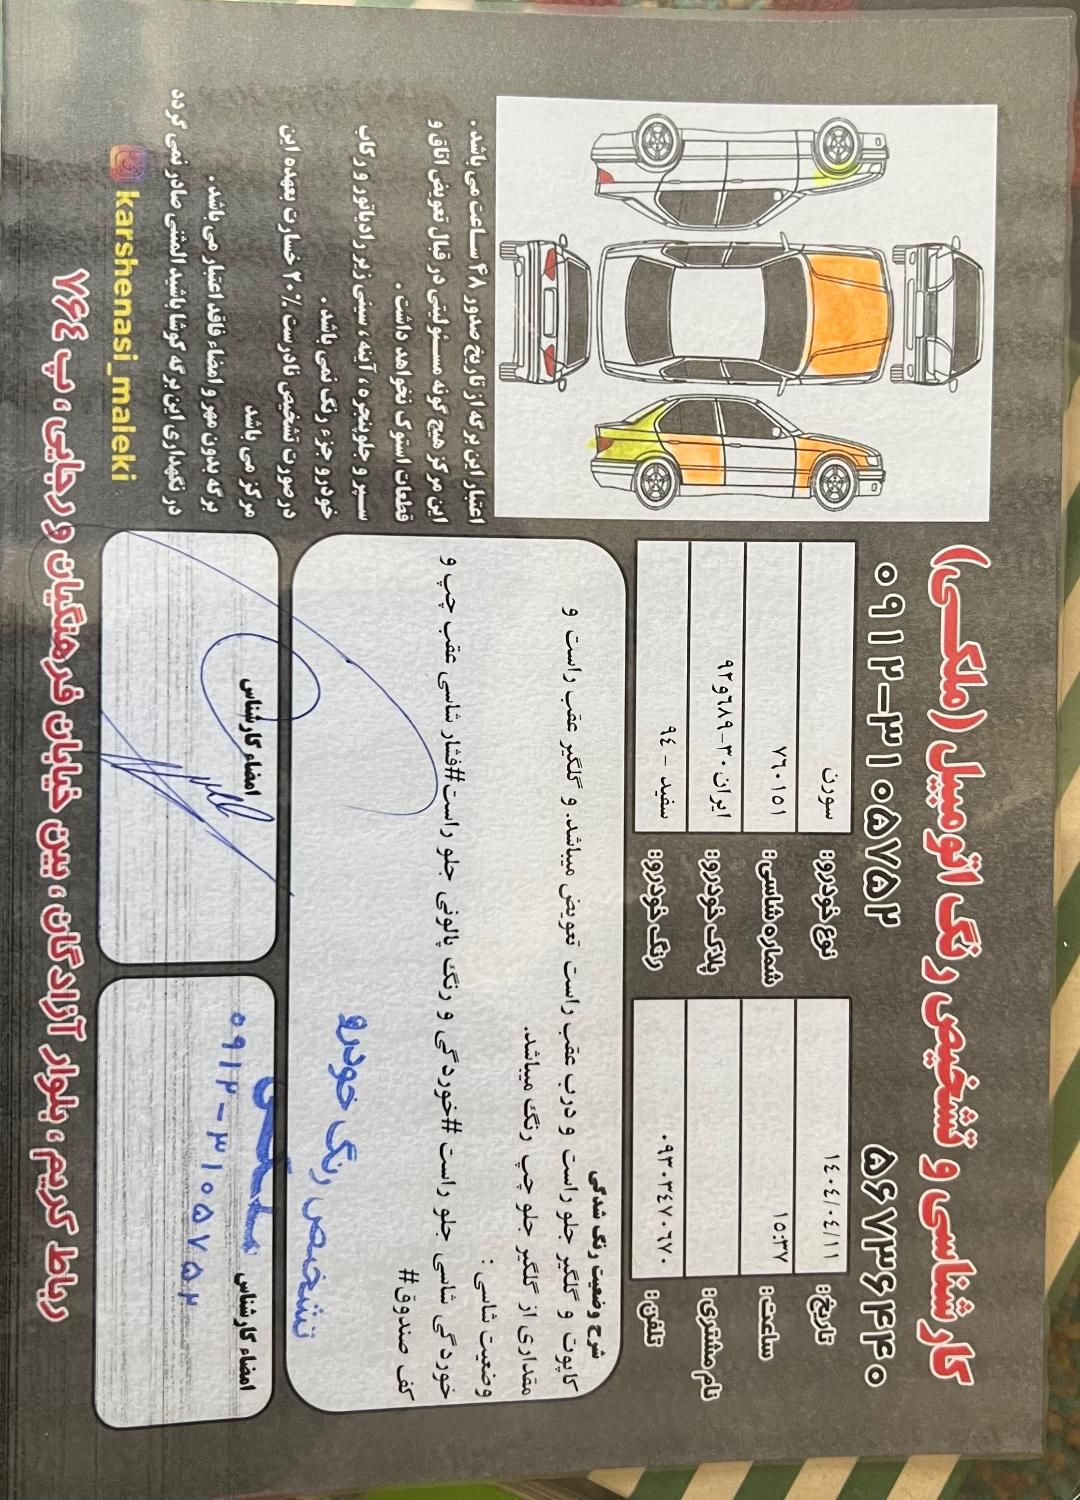 کارشناسی و تشخیص رنگ اتومبیل (ملکی)
۰۹۱۲-۳۱۰۵۷۵۲
۵۶۷۳۶۴۴۰
نوع خودرو: سورن
شماره شاسی: ۷٦۰۱٥۱
پلاک خودرو: ایران ۳۰-٦۸۹و۹۲
رنگ خودرو: سفید - ۹٤
تاریخ: ۱٤۰٤/۰٤/۱۱
ساعت: ۱٥:۳۷
نام مشتری:
تلفن: ۰۹۳۰۳٤۷۰٦۷۰
شرح وضعیت رنگ شدگی
کاپوت و گلگیر جلو راست و درب عقب راست تعویض میباشد. و گلگیر عقب راست و
مقداری از گلگیر جلو چپ رنگ میباشد.
وضعیت شاسی :
خوردگی شاسی جلو راست#خوردگی و رنگ پالونی جلو راست#فشار شاسی عقب چپ و
کف صندوق#
تشخیص رنگ خودرو
۰۹۱۲-۳۱۰۵۷۵۲
امضاء کارشناس
امضاء کارشناس
اعتبار این برگه از تاریخ صدور ۴۸ ساعت می باشد .
این مرکز هیچ گونه مسئولیتی در قبال تعویض اتاق و
قطعات استوک نخواهد داشت .
سپر و جلوپنجره ، آینه ، سینی زیر رادیاتور و رکاب
خودرو جزء رنگ نمی باشد .
درصورت تشخیص نادرست ۲۰٪ خسارت بعهده این
مرکز می باشد
برگه بدون مهر و امضاء فاقد اعتبار می باشد .
در نگهداری این برگه کوشا باشید المثنی صادر نمی گردد
karshenasi_maleki
رباط کریم ، بلوار آزادگان ، بین خیابان فرهنگیان و رجایی ، پ ۷۶۴